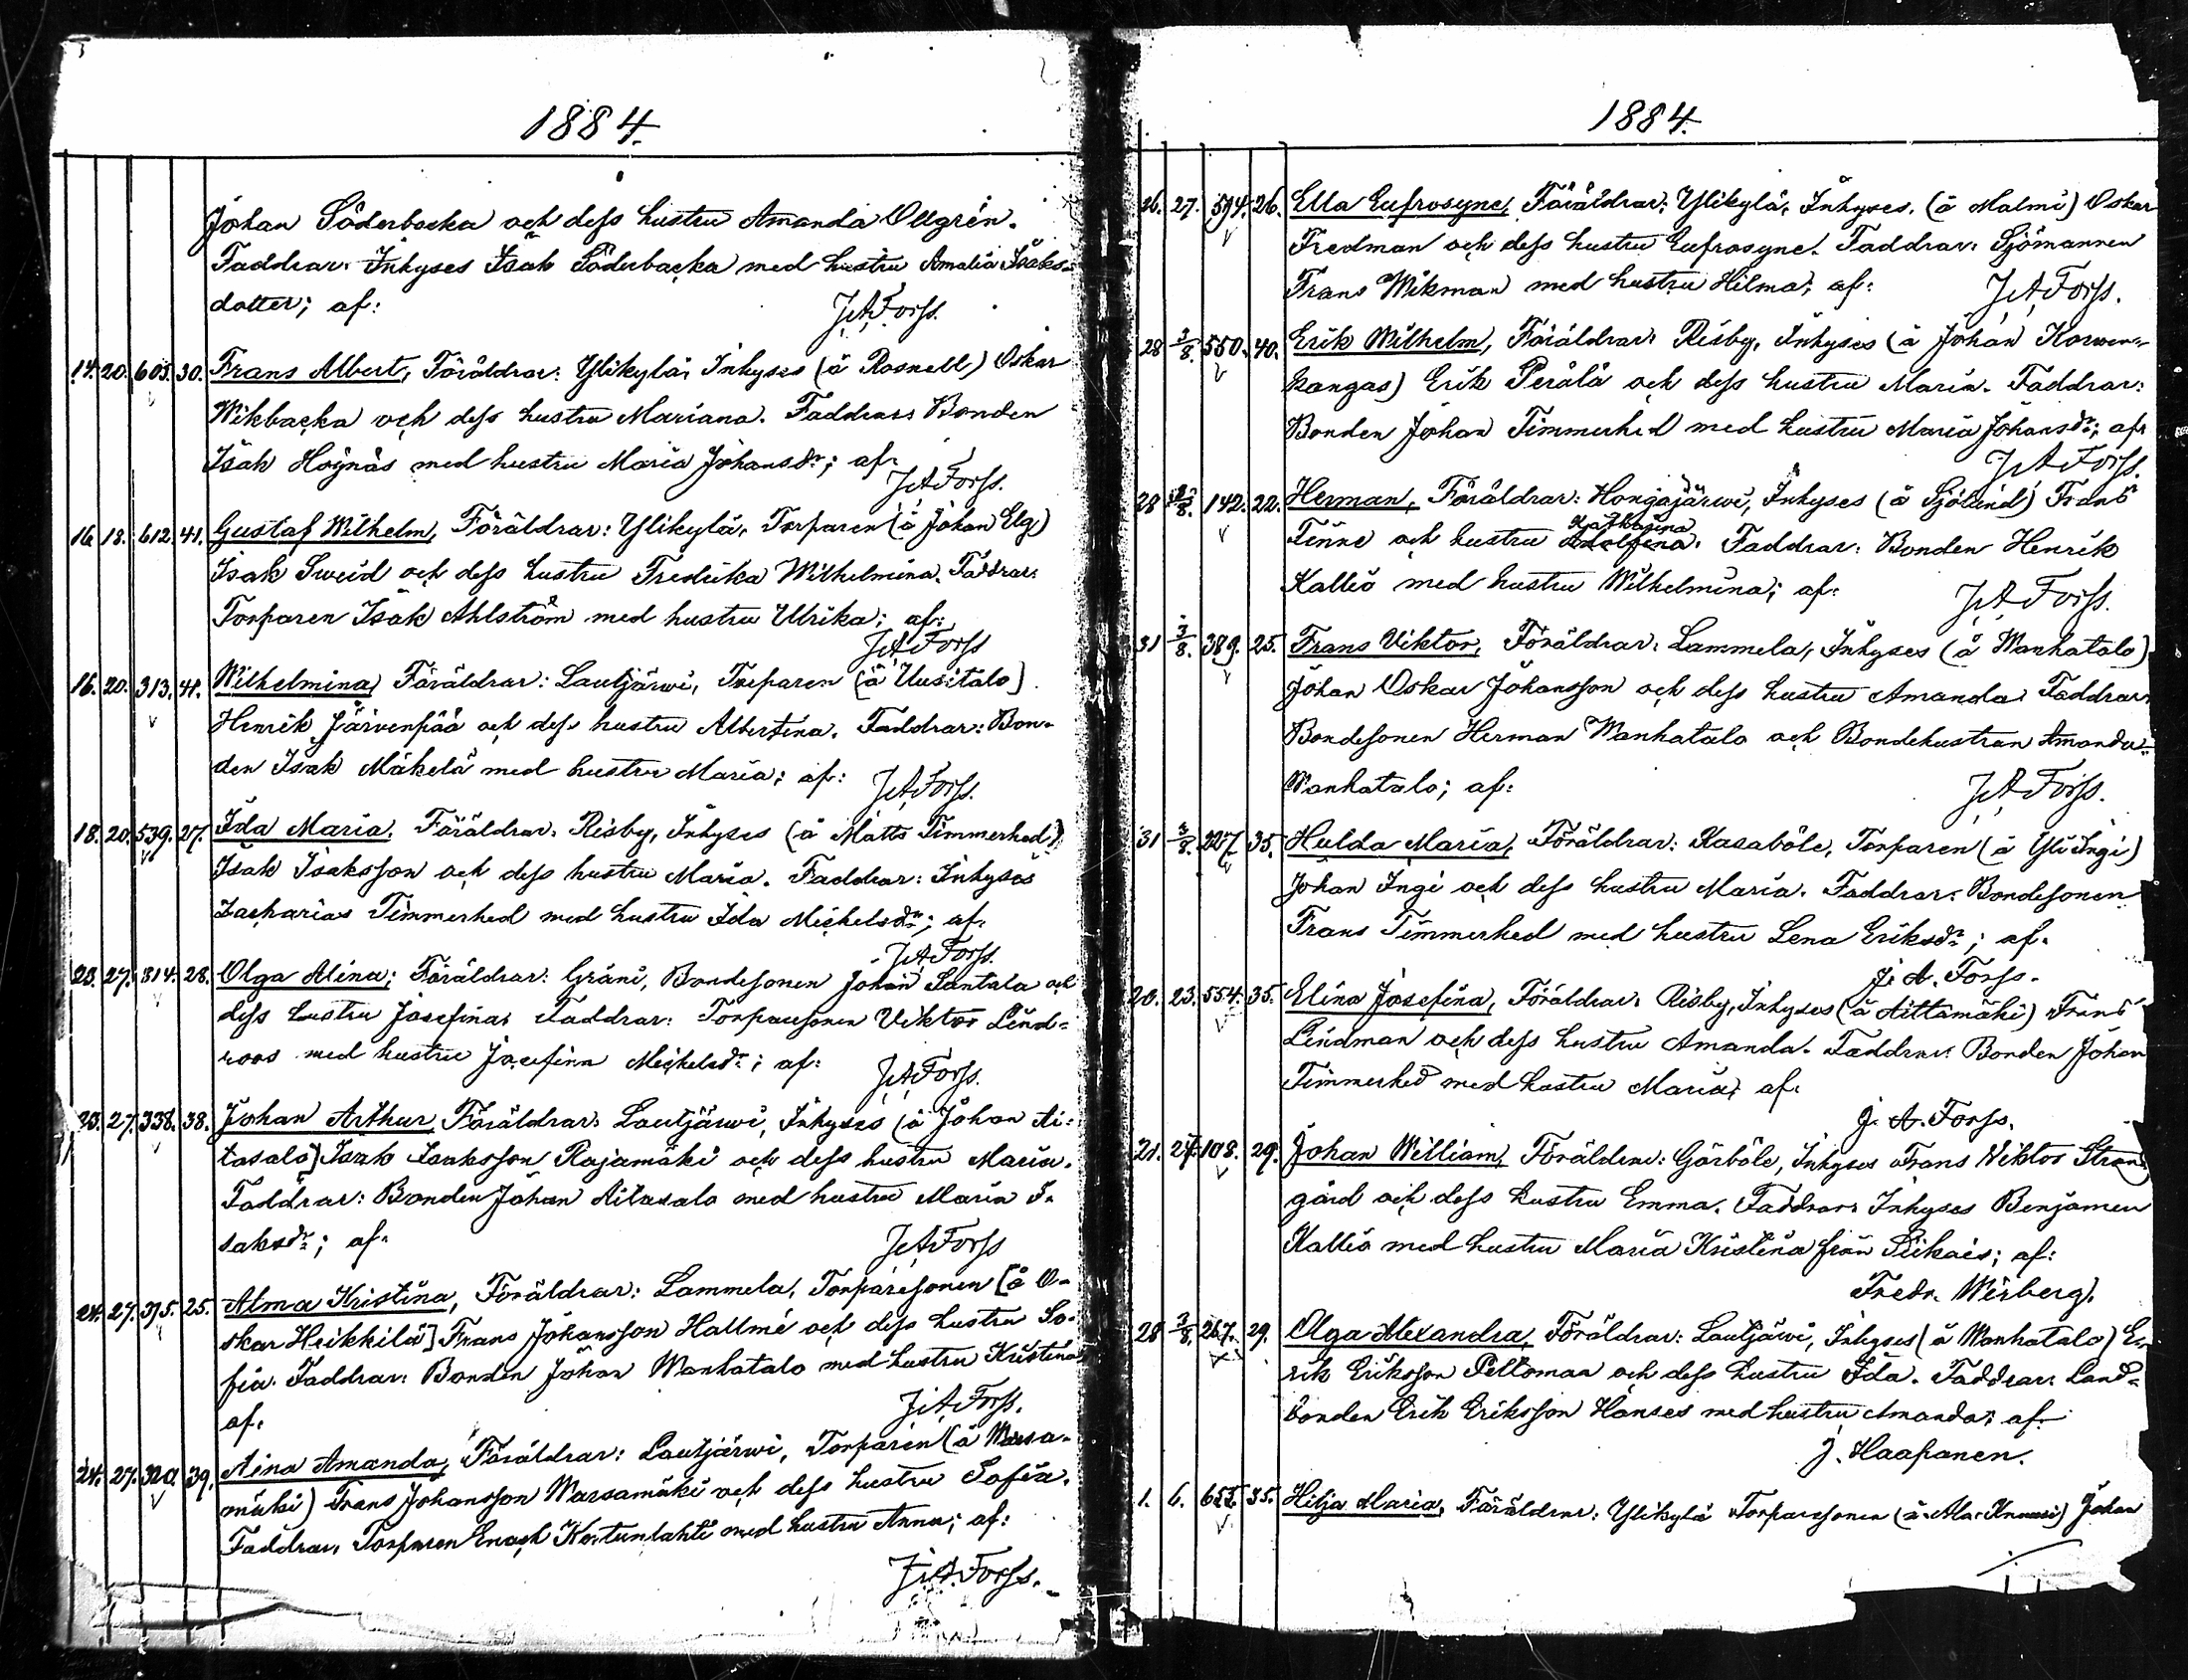 1884.
Johan Söderbacka och dess hustru Amanda Ollgrén.
Faddrar: Inhyses Isak Söderbacka med hustru Amalia Isaks-
dotter; af:
J. A. Forss.
14. 20. 603. 30. Frans Albert, Föräldrar: Ylikylä, Inhyses (å Rosnell) Oskar
Wikbacka och dess hustru Mariana. Faddrar: Bonden
Isak Högnäs med hustru Maria Johansdr; af:
J. A. Forss.
16. 18. 612. 41. Gustaf Wilhelm, Föräldrar: Ylikylä, Torparen (å Johan Elg)
Isak Sweid och dess hustru Fredrika Wilhelmina. Faddrar:
Torparen Isak Ahlström med hustru Ulrika; af:
J. A. Forss
16. 20. 313. 41. Wilhelmina, Föräldrar: Lautjärwi, Torparen (å Uusitalo)
Henrik Järvenpää och dess hustru Albertina. Faddrar: Bon-
den Isak Mäkelä med hustru Maria; af:
J. A. Forss.
18. 20. 539. 27. Ida Maria, Föräldrar: Risby, Inhyses (å Matts Timmerhed)
Isak Isaksson och dess hustru Maria. Faddrar: Inhyses
Zacharias Timmerhed med hustru Ida Michelsdr; af:
J. A. Forss.
23. 27. 314. 28. Olga Alina; Föräldrar: Gräni, Bondesonen Johan Santala och
dess hustru Josefina; Faddrar: Torparesonen Viktor Lind-
roos med hustru Josefina Mickelsdr; af:
J. A. Forss.
23. 27. 338. 38. Johan Arthur, Föräldrar: Lautjärwi, Inhyses (å Johan Ai-
tasalo) Isak Isaksson Rajamäki och dess hustru Maria.
Faddrar: Bonden Johan Aitasalo med hustru Maria I-
saksdr; af:
J. A. Forss
24. 27. 375. 25. Alma Kristina, Föräldrar: Lammela, Torparesonen [å O-
skar Heikkilä] Frans Johansson Hallmé och dess hustru So-
fia. Faddrar: Bonden Johan Wanhatalo med hustru Kristina
af:
J. A. Forss.
24. 27. 320. 39. Aina Amanda, Föräldrar: Lautjärwi, Torparen (å Warsa-
mäki) Frans Johansson Warsamäki och dess hustru Sofia.
Faddrar: Torparen Enach Kortunlahti med hustru Anna; af:
J. A. Forss.
1884.
26. 27. 594. 26. Ella Eufrosyne, Föräldrar: Ylikylä, Inhyses. (å Malmi) Oskar
Fredman och dess hustru Eufrosyne. Faddrar: Sjömannen
Frans Wikman med hustru Hilma; af:
J. A. Forss.
28 3/8. 550. 40. Erik Wilhelm, Föräldrar: Risby, Inhyses (å Johan Korwen-
kangas) Erik Perälä och dess hustru Maria. Faddrar:
Bonden Johan Timmerhed med hustru Maria Johansdr; af:
J. A. Forss.
28 3/8. 142. 22. Herman, Föräldrar: Hongajärwi, Inhyses (å Sjölund) Frans
Katharina
Finne och hustru Adolfina. Faddrar: Bonden Henrik
Kallio med hustru Wilhelmina; af:
J. A. Forss.
31 3/8. 389. 25. Frans Viktor, Föräldrar: Lammela, Inhyses (å Wanhatalo)
Johan Oskar Johansson och dess hustru Amanda. Faddrar:
Bondesonen Herman Wanhatalo och Bondehustrun Amanda
Wanhatalo; af:
J. A. Forss.
31 3/8. 227. 35. Hulda Maria, Föräldrar: Kasaböle, Torparen (å Yli Ingi)
Johan Ingi och dess hustru Maria. Faddrar: Bondesonen
Frans Timmerhed med hustru Lena Eriksdr; af:
J. A. Forss.
20. 23. 554. 35. Elina Josefina, Föräldrar: Risby, Inhyses (å Aittamäki) Frans
Lindman och dess hustru Amanda. Faddrar: Bonden Johan
Timmerhed med hustru Maria; af:
J. A. Forss.
21. 27. 108. 29. Johan William, Föräldrar: Görböle, Inhyses Frans Viktor Strand
gård och dess hustru Emma. Faddrar: Inhyses Benjamin
Kallio med hustru Maria Kristina från Siikais; af:
Fredr. Wirberg.
28 3/8. 267. 29. Olga Alexandra, Föräldrar: Lautjärwi, Inhyses (å Wanhatalo) E-
rik Eriksson Peltomaa och dess hustru Ida. Faddrar: Land-
bonden Erik Eriksson Hanses med hustru Amanda; af:
J. Haapanen.
1. 6. 35. Hilja Maria, Föräldrar: Ylikylä Torparesonen (å Ala-Knuusi) Johan